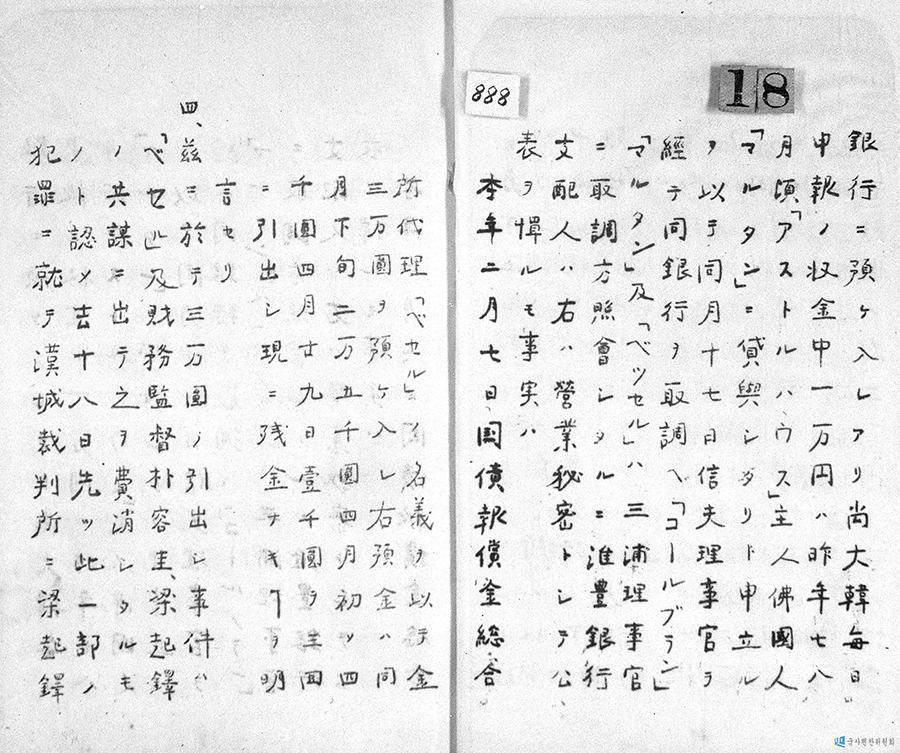 18
888
銀行ニ預ケ入レアリ尚大韓每日
申報ノ収金中一万円ハ昨年七八
月頃「アストルハウス」主人佛國人
「マルタン」ニ貸與シタリト申立ル
ヲ以テ同月十七日信夫理事官ヲ
經テ同銀行ヲ取調ヘ「コールブラン」
「マルタン」及「ベッセル」ハ三浦理事官
ニ取調方照會シタルニ淮豊銀行
支配人ハ右ハ營業秘密トシテ公
表ヲ憚ルモ事実ハ
本年二月七日國債報償金総合
所代理「ベセル」ノ名義ヲ以テ金
三万圓ヲ預ケ入レ右預金ハ同
月下旬二万五千圓四月初メ四
千圓四月廿九日壹千圓ヲ
ニ引出シ現ニ残金ナキ明
言セリ
四、茲ニ於テ三万圓ノ引出シ事件ハ
「ベセル」及財務監督朴容圭、梁起鐸
ノ共謀ニ出テ之ヲ費消シタルモ
ノト認メ去十八日先ッ此一部ノ
犯罪ニ就テ漢城裁判所ニ梁起鐸
국사편찬위원회